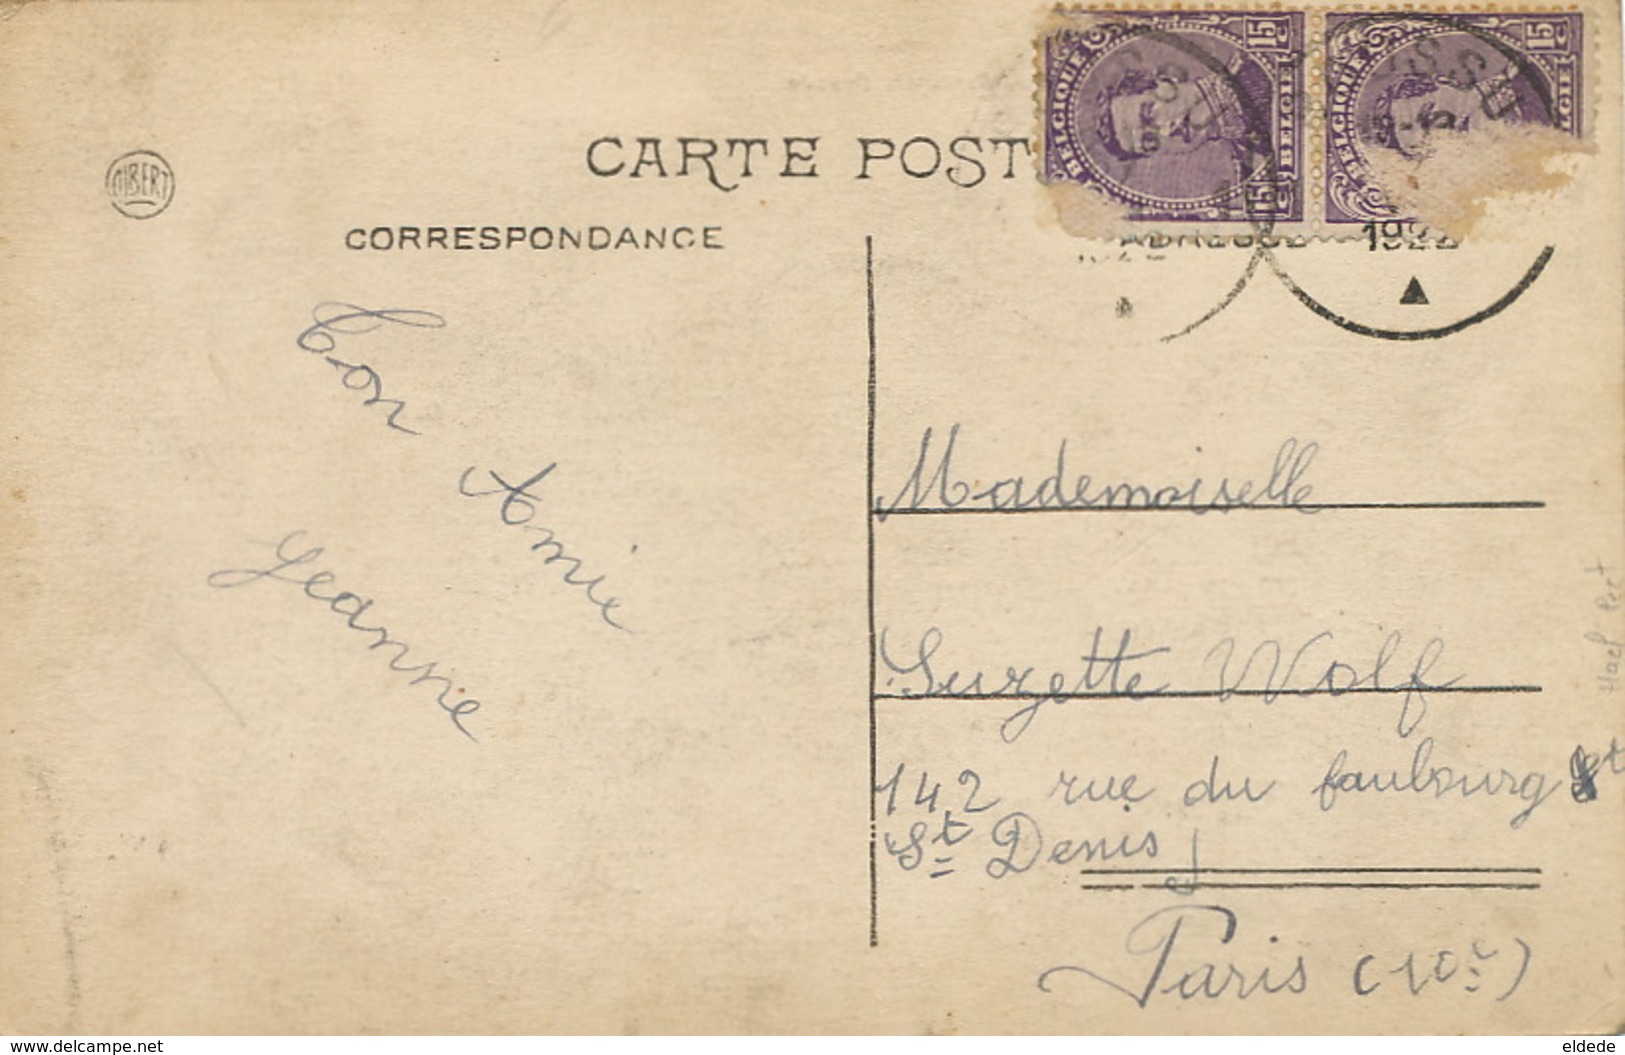 CARTE POST
ALBERT
CORRESPONDANCE
BELGIQUE 15 15 BELGIE
BELGIQUE 15 BELGIE
1922
Ton
Amie
Jeanne
Mademoiselle
Suzette Wolf
142 rue du faubourg
St Denis
Paris (10e)
delcampe.net
eldede